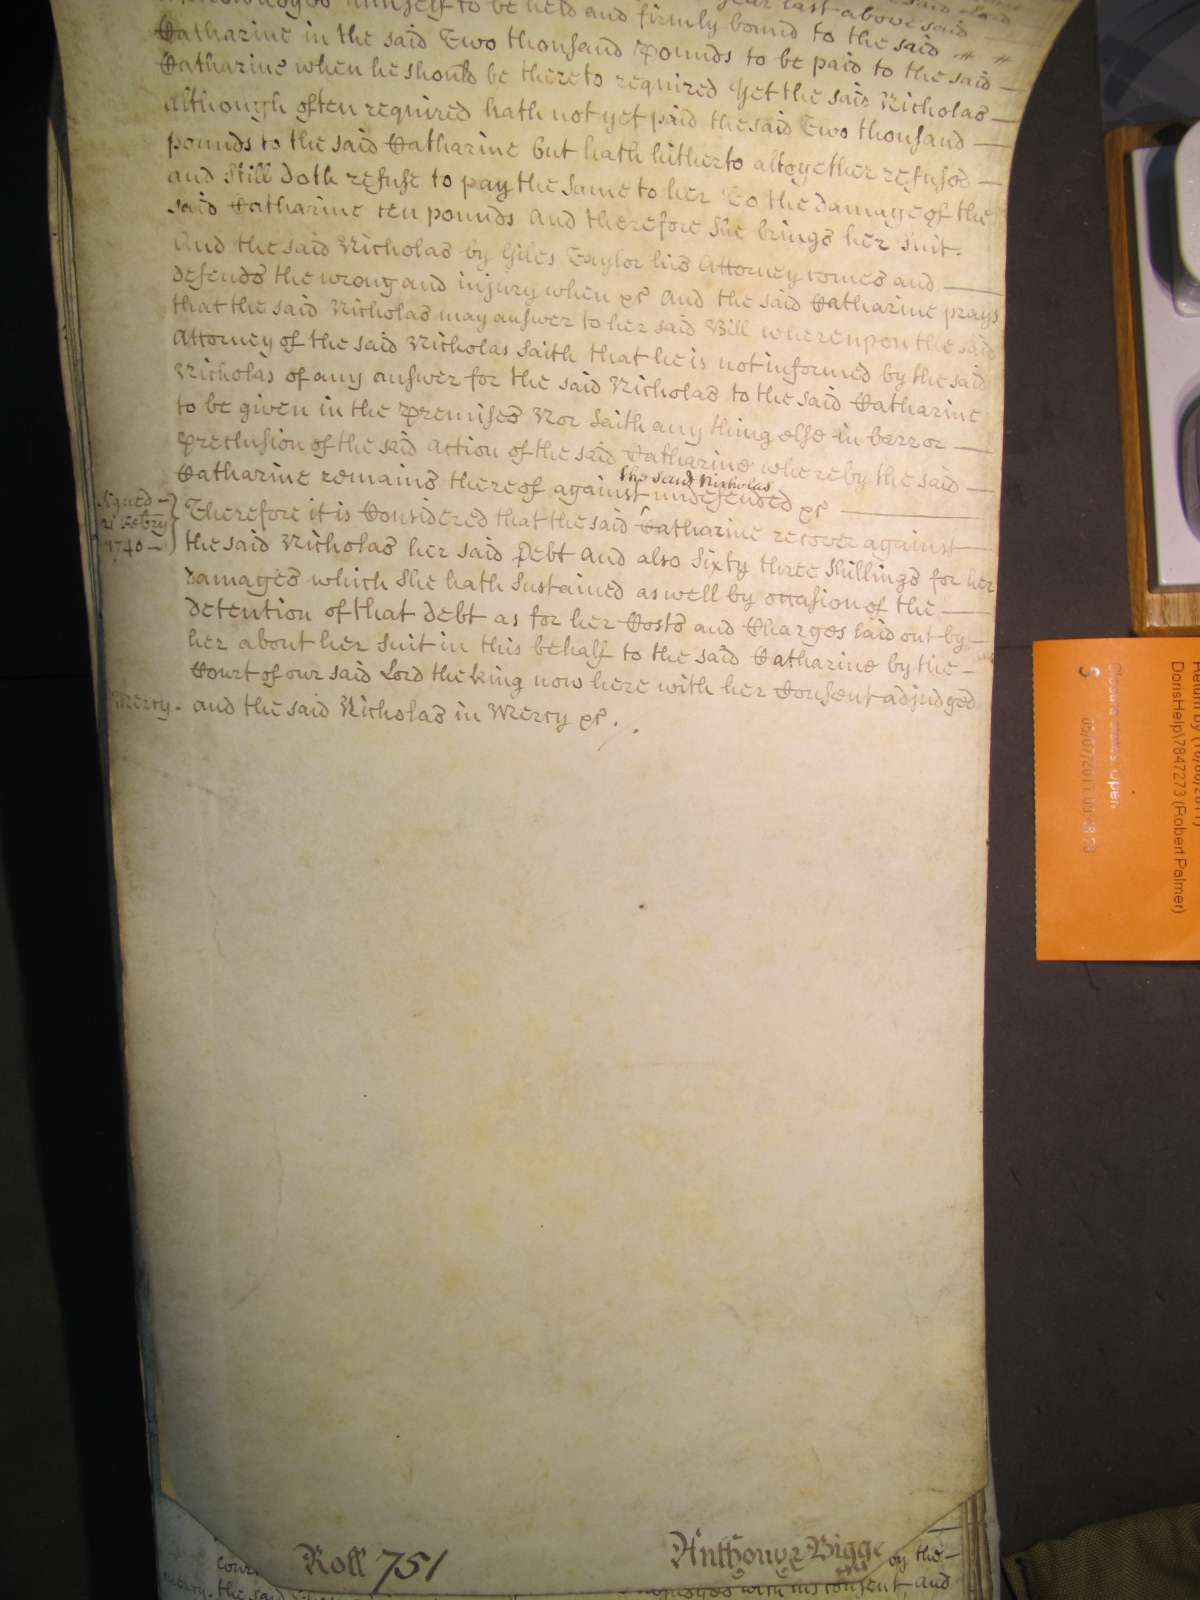 himself to be held and firmly bound to the said
Katharine in the said Two thousand Pounds to be paid to the said
Katharine when he should be thereto required Yet the said Nicholas
although often required hath not yet paid the said Two thousand
pounds to the said Katharine but hath hitherto altogether refused
and Still doth refuse to pay the same to her To the damage of the
said Katharine ten pounds And therefore She brings her suit.
And the said Nicholas by Giles Taylor his Attorney comes and
defends the wrong and injury when &c And the said Katharine prays
that the said Nicholas may answer to her said Bill whereupon the said
Attorney of the said Nicholas Saith that he is not informed by the said
Nicholas of any answer for the said Nicholas to the said Katharine
to be given in the Premises Nor Saith any thing else in barr or
Preclusion of the said Action of the said Katharine whereby the said
the said Nicholas
Katharine remains thereof against undefended &c
Signed 21 Febry 1740
Therefore it is Considered that the said Katharine recover against
the said Nicholas her said Debt and also Sixty three Shillings for her
damages which She hath Sustained as well by occasion of the
detention of that debt as for her Costs and Charges laid out by
her about her Suit in this behalf to the said Katharine by the
Court of our said Lord the king now here with her Consent adjudged
Mercy. and the said Nicholas in Mercy &c.
Roll 751
Anthony Bigge
by the
with his consent and
the said
DorisHelp\7847273 (Robert Palmer)
S